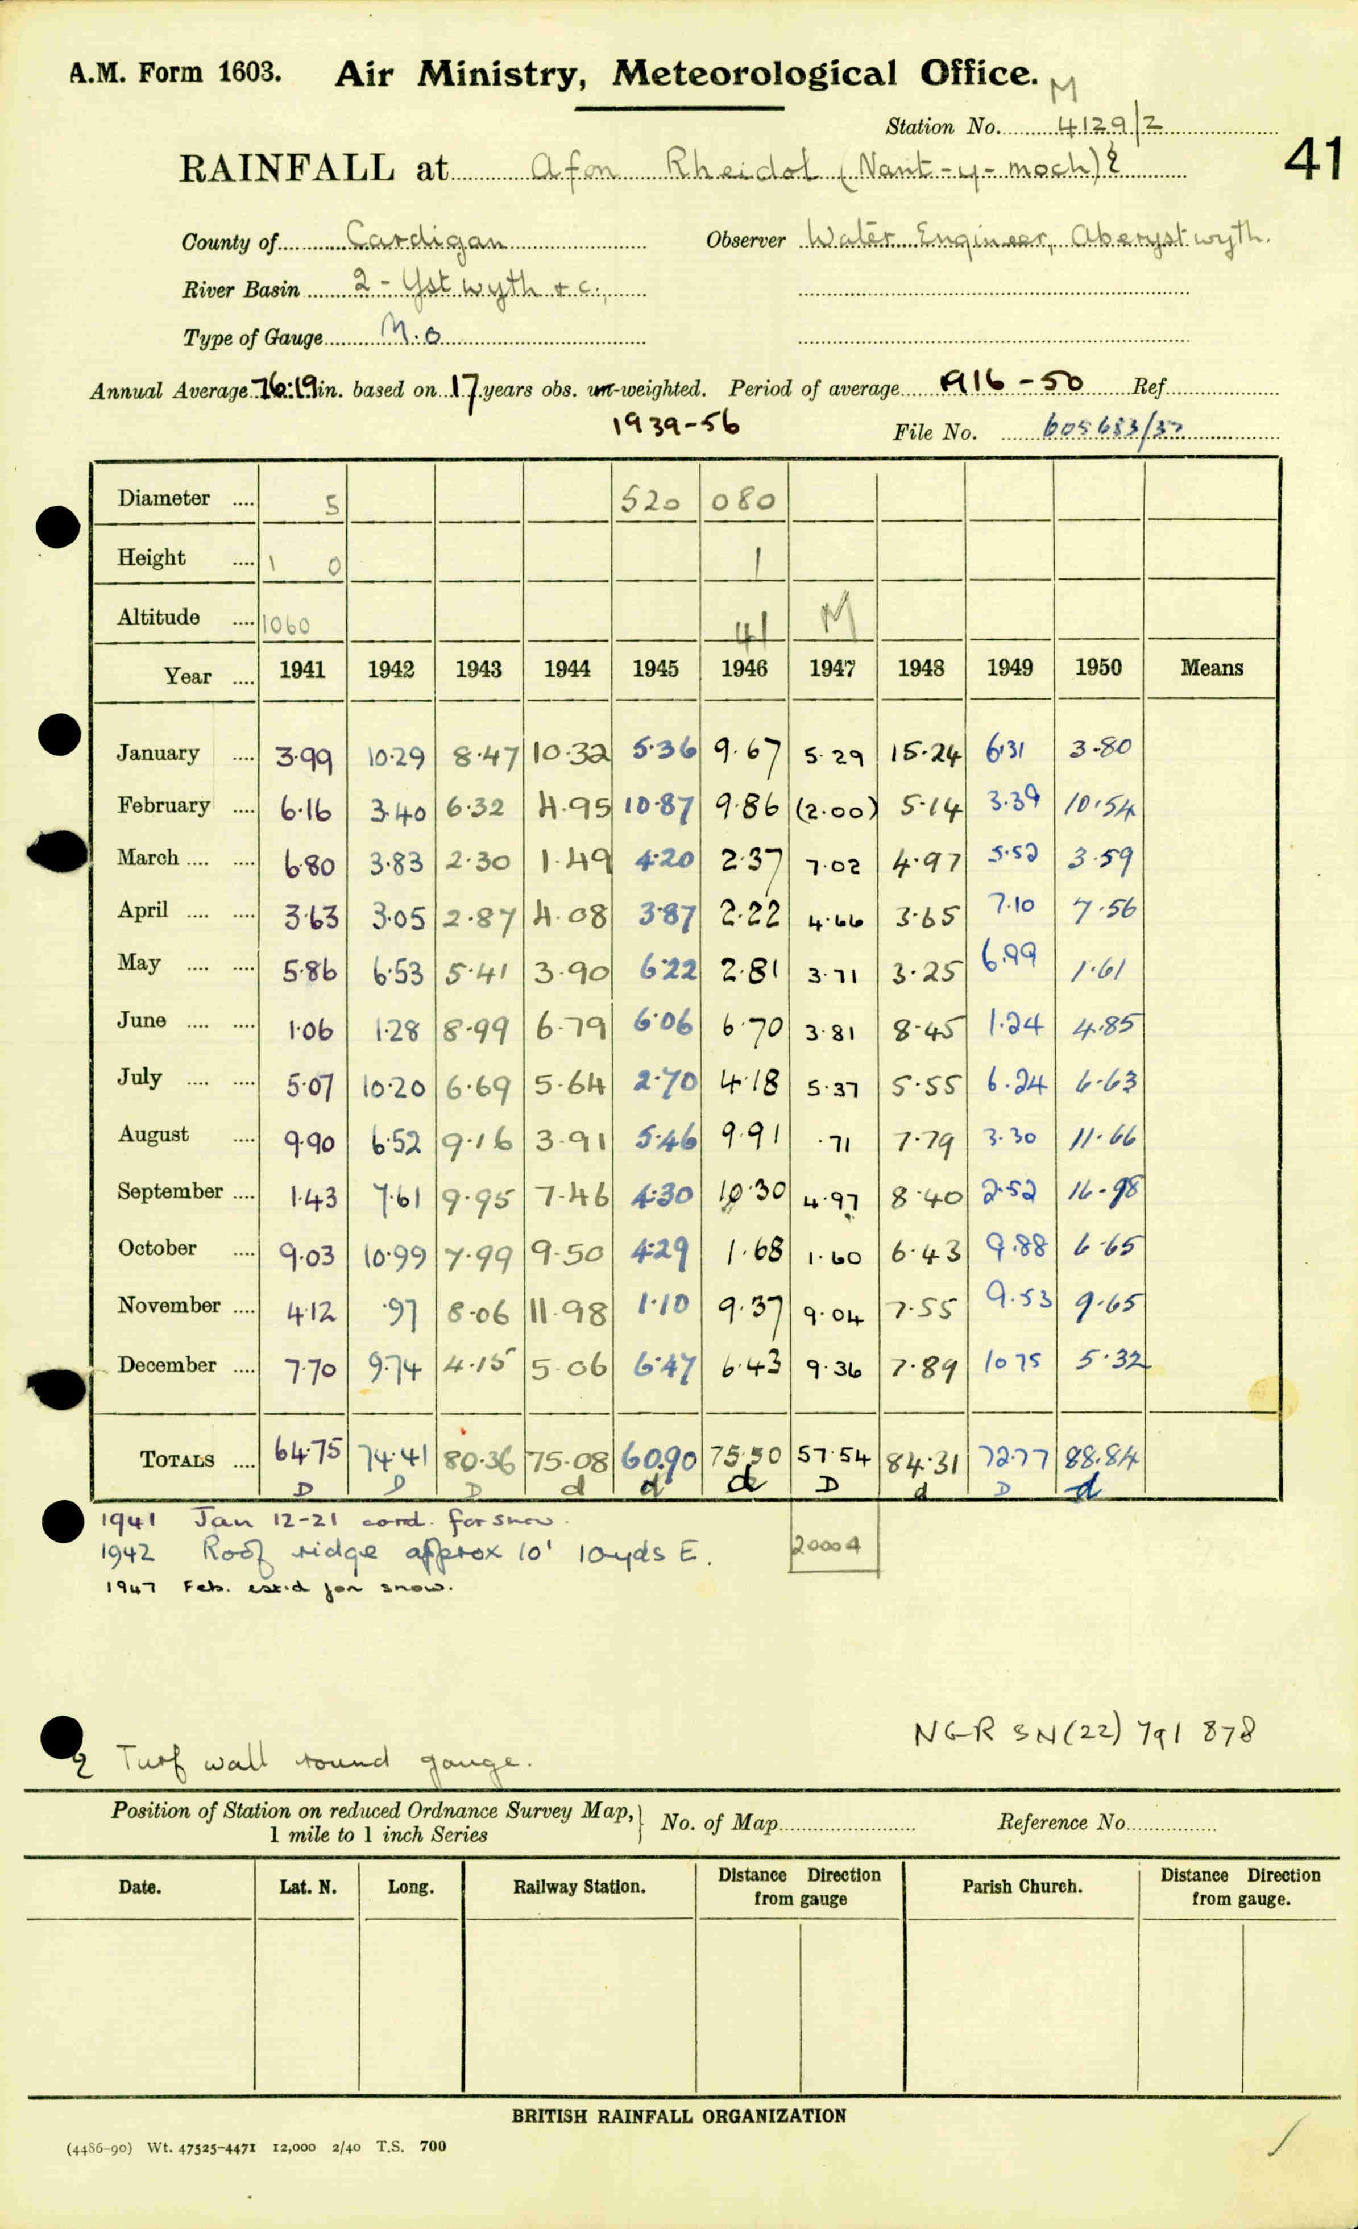 A.M. Form 1603. Air Ministry, Meteorological Office.
M
Station No. 4129/2
41
RAINFALL at Afon Rheidol (Nant-y-moch) ξ
County of Cardigan Observer Water Engineer, Aberystwyth.
River Basin 2 - Ystwyth & c.,
Type of Gauge M.O
Annual Average 76.19 in. based on 17 years obs. un-weighted. Period of average 1916-50 Ref.
1939-56 File No. 605683/37
Diameter .... 5 520 080
Height .... 1 0 1
Altitude .... 1060 41 M
Year .... 1941 1942 1943 1944 1945 1946 1947 1948 1949 1950 Means
January .... 3.99 10.29 8.47 10.32 5.36 9.67 5.29 15.24 6.31 3.80
February .... 6.16 3.40 6.32 4.95 10.87 9.86 (2.00) 5.14 3.39 10.54
March .... .... 6.80 3.83 2.30 1.49 4.20 2.37 7.02 4.97 5.52 3.59
April .... .... 3.63 3.05 2.87 4.08 3.87 2.22 4.66 3.65 7.10 7.56
May .... .... 5.86 6.53 5.41 3.90 6.22 2.81 3.71 3.25 6.99 1.61
June .... .... 1.06 1.28 8.99 6.79 6.06 6.70 3.81 8.45 1.24 4.85
July .... .... 5.07 10.20 6.69 5.64 2.70 4.18 5.37 5.55 6.24 6.63
August .... 9.90 6.52 9.16 3.91 5.46 9.91 .71 7.79 3.30 11.66
September .... 1.43 7.61 9.95 7.46 4.30 10.30 4.97 8.40 2.52 16.98
October .... 9.03 10.99 7.99 9.50 4.29 1.68 1.60 6.43 9.88 6.65
November .... 4.12 .97 8.06 11.98 1.10 9.37 9.04 7.55 9.53 9.65
December .... 7.70 9.74 4.15 5.06 6.47 6.43 9.36 7.89 10.75 5.32
TOTALS .... 64.75 74.41 80.36 75.08 60.90 75.50 57.54 84.31 72.77 88.84
D D D d d d D d D d
1941 Jan 12-21 cord. for snow.
1942 Roof ridge approx 10' 10yds E. 20004
1947 Feb. est.d for snow.
NGR SN(22) 791 878
ξ Turf wall round gauge.
Position of Station on reduced Ordnance Survey Map, } No. of Map Reference No.
1 mile to 1 inch Series
Date. Lat. N. Long. Railway Station. Distance Direction from gauge Parish Church. Distance Direction from gauge.
BRITISH RAINFALL ORGANIZATION
(4486-90) Wt. 47525-4471 12,000 2/40 T.S. 700